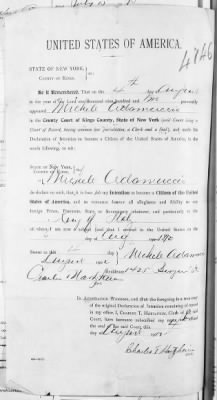 4746
UNITED STATES OF AMERICA.
STATE OF NEW YORK,
COUNTY OF KINGS, ss:
Be it Remembered, That on the 4th day of August
in the year of our Lord one thousand nine hundred and two personally
appeared Michele Adamuccio
in the County Court of Kings County, State of New York (said Court being a
Court of Record, having common law jurisdiction, a Clerk and a Seal), and made the
Declaration of Intention to become a Citizen of the United States of America, in
words following, to wit:
STATE OF NEW YORK,
COUNTY OF KINGS, ss:
I, Michele Adamuccio
do declare on oath, that it is bona fide my Intention to become a Citizen of the United
States of America, and to renounce forever all allegiance and fidelity to any
foreign Prince, Potentate, State or Sovereignty whatever, and particularly to the
King of Italy
of whom I am now a subject; that I arrived in the United States on the
day of Aug 1890
Sworn to this 4
day of August 1902
Michele Adamuccio
Charles T. Hartzheim
Residence 1425
Clerk.
IN ATTESTATION WHEREOF, and that the foregoing is a true copy
of the original Declaration of Intention remaining of record
in my office, I, CHARLES T. HARTZHEIM, Clerk of
Court, have hereunto subscribed my name and
the seal of the said Court, this
day of August 1902
Charles T. Hartzheim
Clerk.